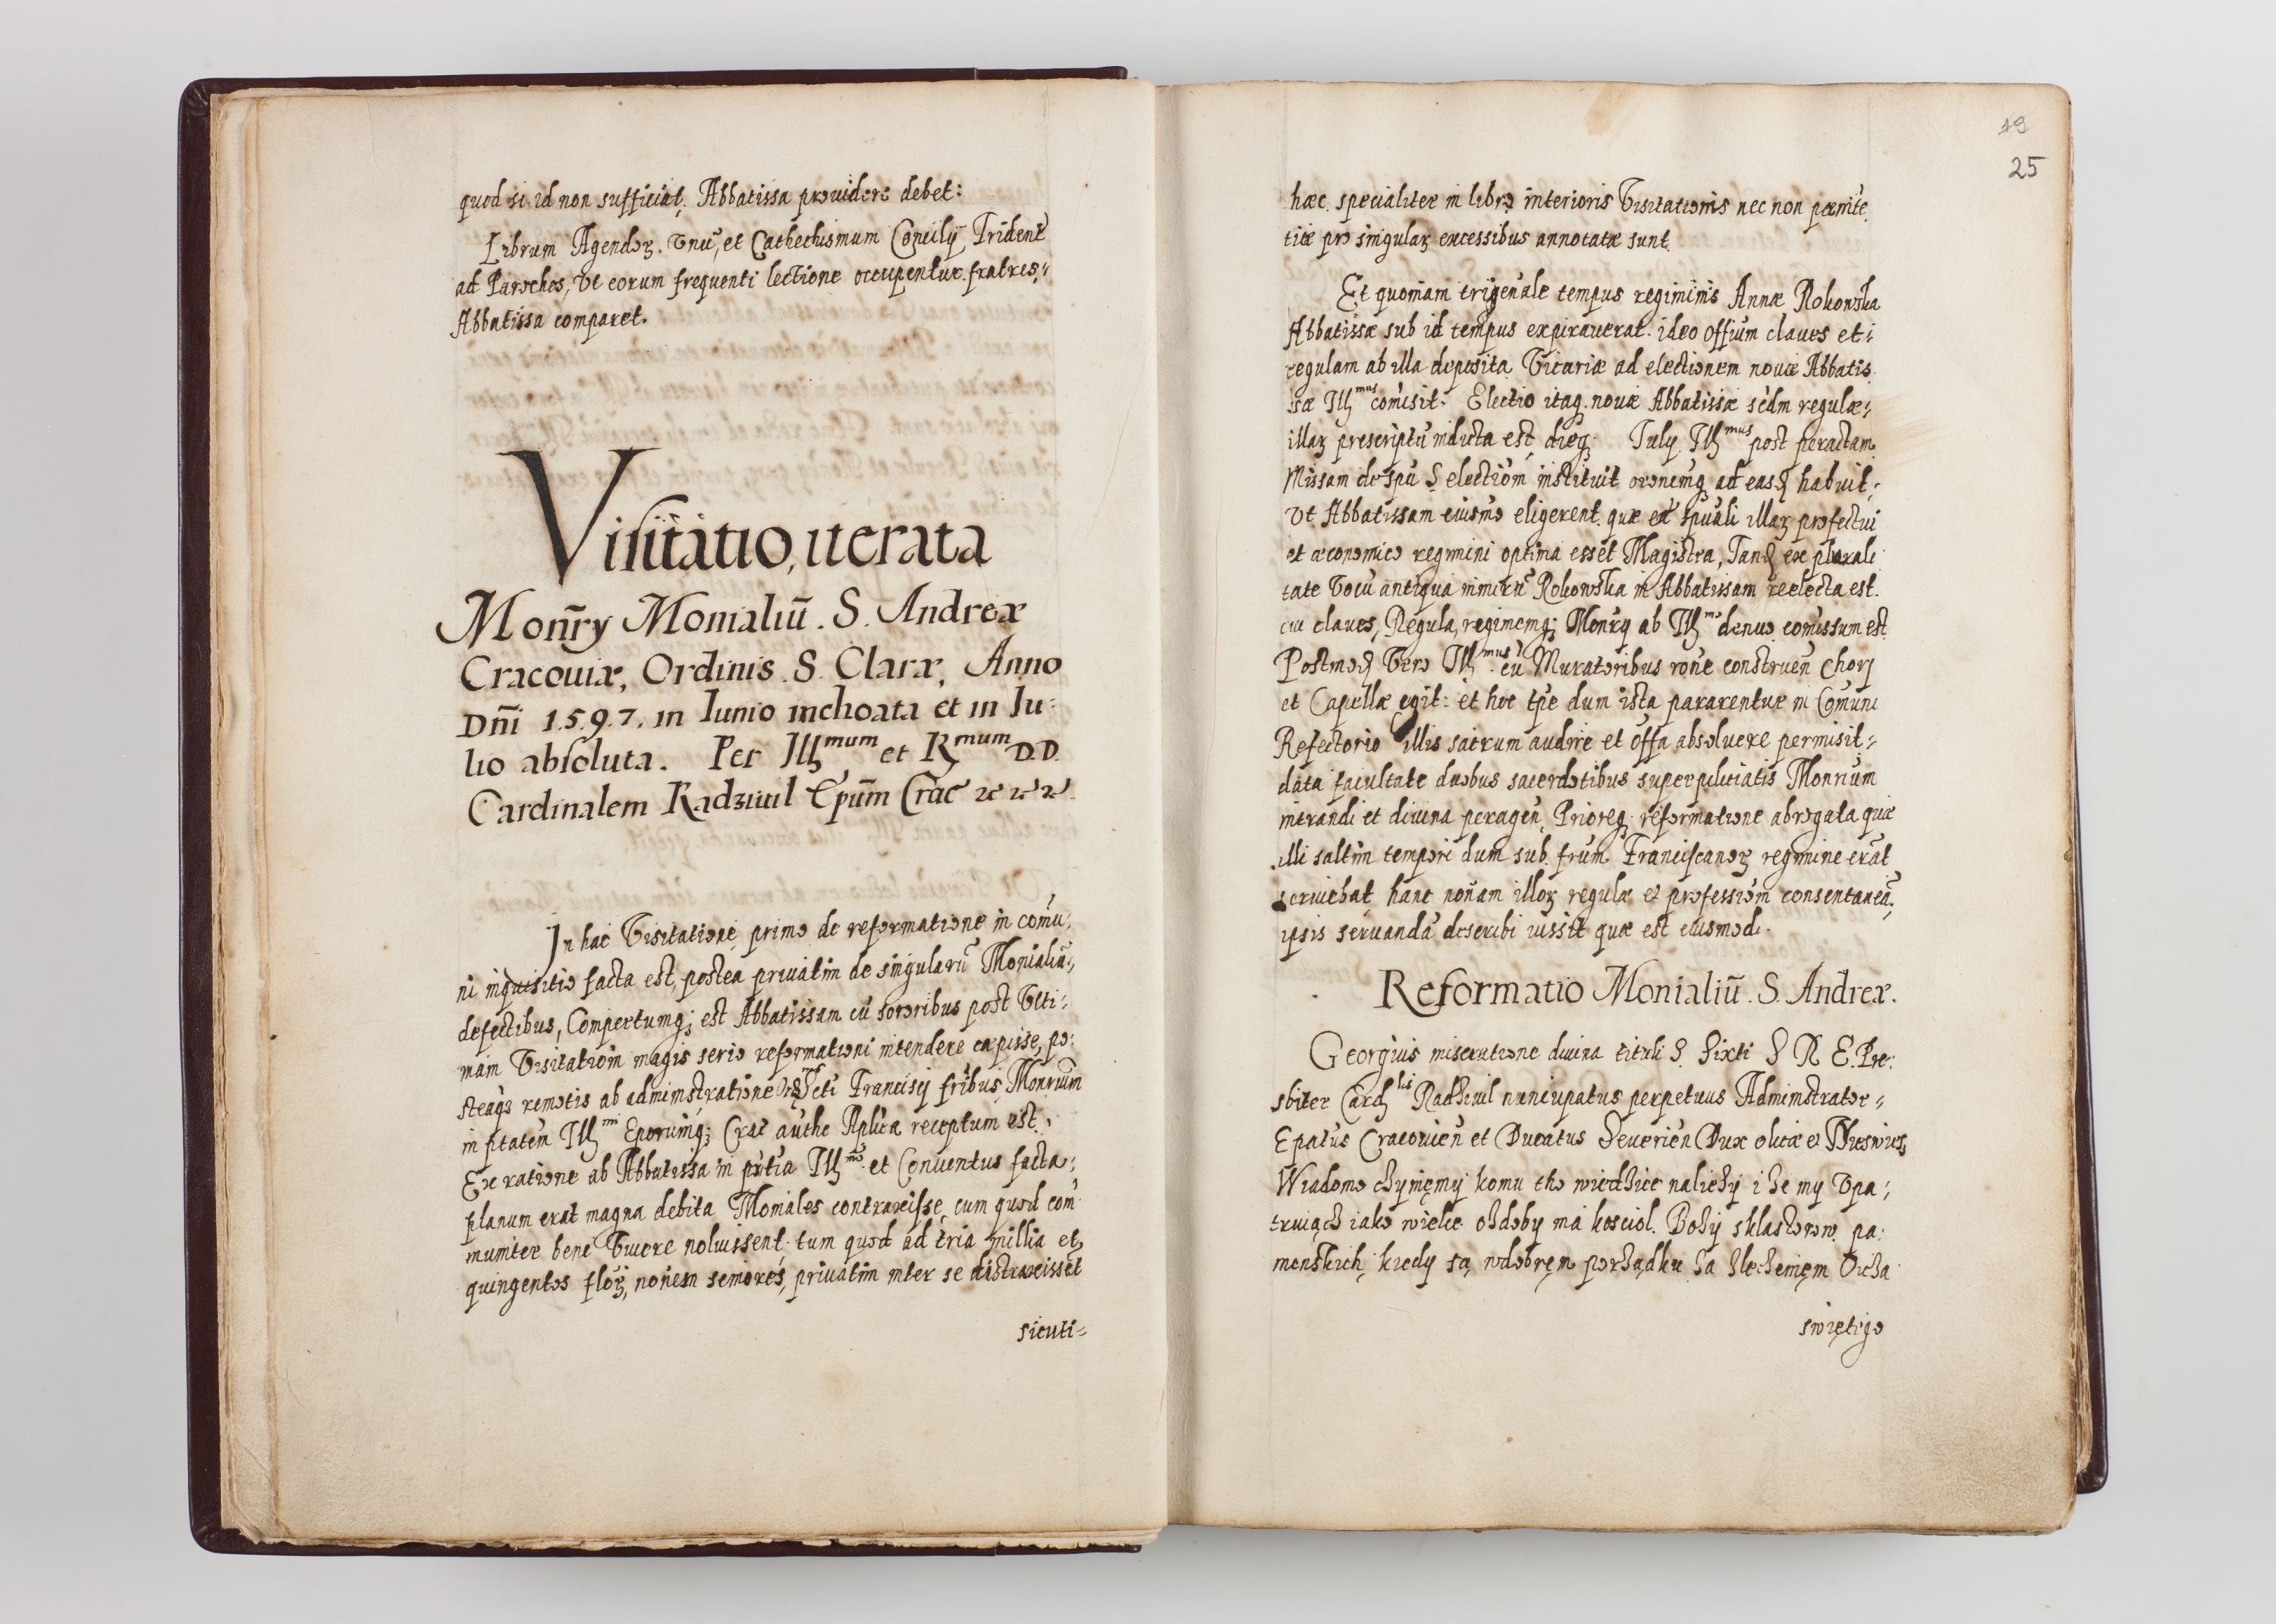 quod si id non sufficiat, Abbatissa prouidere debet:
Librum Agendoꝝ. Vnū, et Cathechismum Concilÿ Trident
ad Parochos, Vt eorum frequenti lectione occupentur fratres,
Abbatissa comparet.
Visitatio, iterata
Mon̄ry Monialiū. S. Andreæ
Cracouiæ, Ordinis. S. Claræ, Anno
Dn̄i 1.5.9.7. in Iunio inchoata et in Iu:
lio absoluta. Per Illmum et Rmum D.D.
Cardinalem Radziuil Ep̄um Crac
In hac Visitatione primo de reformatione in comu,
ni inquisitio facta est, postea priuatim de singularū Monialiū,
defectibus, Compertumq; est Abbatissam cū sororibus post Vlti:
mam Visitatiom magis serio reformationi intendere cæpisse, po:
steaqȝ remotis ab administratione Francisci fribus, Monrium
in ptatem Illmi Eporumq; Crac authe Aplica receptum est.
Ex ratione ab Abbatissa in Illmi et Conuentus facta,
planum erat magna debita Moniales contraxisse, cum quod com
muniter bene Viuere noluissent. tum quod ad tria millia et
quingentos floꝝ, seniores, priuatim inter se distraxissēt
sicuti-
19
25
hæc specialiter in libro interioris Visitationis nec non pænite
tiæ pro singulaꝝ excessibus annotatæ sunt.
Et quoniam trigenale tempus regiminis Annæ Rokowska
Abbatissæ sub id tempus expirauerat. ideo offium claues et
regulam ab illa deposita Vicariæ ad electionem nouæ Abbatis
sæ Illmus comisit. Electio itaq. nouæ Abbatissæ scdm regulæ
illaꝝ prescriptū indicta est, July Illmus post peractam
Missam de Spu S electiom instituit oronemq ad easd habuit,
Vt Abbatissam eiusmo eligerent. quæ et spuali illaꝝ profectui
et æconomico regimini optima esset Magistra, Tand ex plurali
tate Vocū antiqua nimirū Rokowska in Abbatissam reelecta est.
cui claues, Regula, regimemq; Monry ab Illmo denuo comissum est.
Postmod Vero Illmus cū Muratoribus rone construen Chori
et Capellæ egit: et hoc tpe dum ista pararentur in Comuni
Refectorio illis sacrum audire et offa absoluere permisit
data facultate duobus sacerdotibus superpeliciatis Monrium
intrandi et diuina peragen, Prioreq. reformatione abrogata quæ
illi saltim tempori dum sub. frum Franciscanoꝝ regimine erat
seruiebat, hanc illoꝝ regulæ et professiom consentaneā,
ipsis seruandā describi iussit quæ est eiusmodi.
Reformatio Monialiū. S. Andreæ.
Georgius miseratione diuina tituli S. Sixti S R E. Pre:
sbiter Cardlis Radziuil nuncupatus perpetuus Administrator
Epatus Cracouien et Ducatus Seuerien Dux olicæ et Nieswies
Wiadomo czynięmÿ komu tho wiedziec nalezÿ i ze mÿ Vpa,
truiącz iako wielie ozdobÿ ma kosciol. Bozÿ sklastorow pa:
menskich, kiedy są wdobręm porządku za zleczenięm Oicza
swiętego